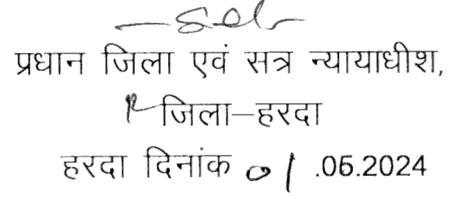 —Sd—
प्रधान जिला एवं सत्र न्यायाधीश,
जिला–हरदा
हरदा दिनांक 01 .06.2024